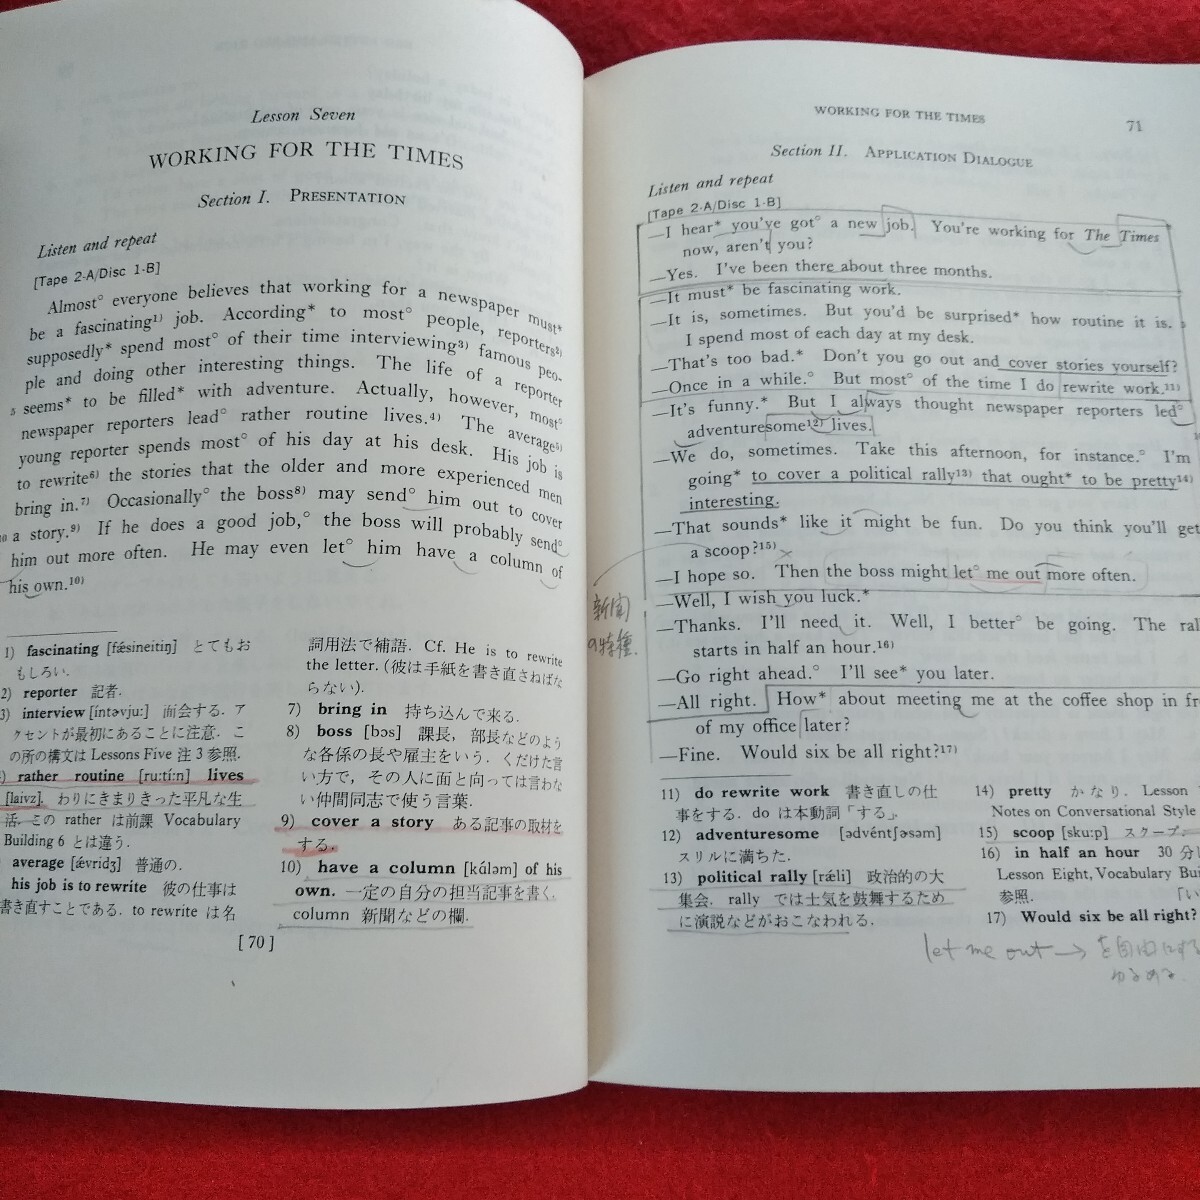 Lesson Seven
WORKING FOR THE TIMES
Section I. PRESENTATION
Listen and repeat
[Tape 2-A/Disc 1-B]
Almost° everyone believes that working for a newspaper must*
be a fascinating¹⁾ job. According* to most° people, reporters²⁾
supposedly* spend most° of their time interviewing³⁾ famous peo-
ple and doing other interesting things. The life of a reporter
5 seems* to be filled* with adventure. Actually, however, most°
newspaper reporters lead° rather routine lives.⁴⁾ The average⁵⁾
young reporter spends most° of his day at his desk. His job is
to rewrite⁶⁾ the stories that the older and more experienced men
bring in.⁷⁾ Occasionally° the boss⁸⁾ may send° him out to cover
10 a story.⁹⁾ If he does a good job,° the boss will probably send°
him out more often. He may even let° him have a column of
his own.¹⁰⁾
1) fascinating [fǽsineitiŋ] とてもお
もしろい.
2) reporter 記者.
3) interview [íntəvju:] 面会する. ア
クセントが最初にあることに注意. こ
の所の構文は Lessons Five 注 3 参照.
4) rather routine [ru:tí:n] lives
[laivz]. わりにきまりきった平凡な生
活. この rather は前課 Vocabulary
Building 6 とは違う.
average [ǽvridʒ] 普通の.
his job is to rewrite 彼の仕事は
書き直すことである. to rewrite は名
詞用法で補語. Cf. He is to rewrite
the letter. (彼は手紙を書き直さねばな
らない).
7) bring in 持ち込んで来る.
8) boss [bɔs] 課長, 部長などのよう
な各係の長や雇主をいう. くだけた言
い方で, その人に面と向っては言わな
い仲間同志で使う言葉.
9) cover a story ある記事の取材を
する.
10) have a column [kɑ́ləm] of his
own. 一定の自分の担当記事を書く.
column 新聞などの欄.
[ 70 ]
WORKING FOR THE TIMES
71
Section II. APPLICATION DIALOGUE
Listen and repeat
[Tape 2-A/Disc 1-B]
—I hear* you've got° a new job. You're working for The Times
now, aren't you?
—Yes. I've been there about three months.
—It must* be fascinating work.
—It is, sometimes. But you'd be surprised* how routine it is. 5
I spend most of each day at my desk.
—That's too bad.* Don't you go out and cover stories yourself?
—Once in a while.° But most° of the time I do rewrite work.¹¹⁾
—It's funny.* But I always thought newspaper reporters led°
adventuresome¹²⁾ lives.
—We do, sometimes. Take this afternoon, for instance.° I'm
going* to cover a political rally¹³⁾ that ought* to be pretty¹⁴⁾
interesting.
—That sounds* like it might be fun. Do you think you'll get
a scoop?¹⁵⁾
—I hope so. Then the boss might let° me out more often.
新聞
の特種.
—Well, I wish you luck.*
—Thanks. I'll need it. Well, I better° be going. The ral
starts in half an hour.¹⁶⁾
—Go right ahead.° I'll see* you later.
—All right. How* about meeting me at the coffee shop in fr
of my office later?
—Fine. Would six be all right?¹⁷⁾
11) do rewrite work 書き直しの仕
事をする. do は本動詞「する」
12) adventuresome [ədvéntʃəsəm]
スリルに満ちた.
13) political rally [rǽli] 政治的の大
集会. rally では士気を鼓舞するため
に演説などがおこなわれる.
14) pretty かなり. Lesson
Notes on Conversational Style
15) scoop [sku:p] スクープ.
16) in half an hour 30分
Lesson Eight, Vocabulary Bui
参照. 「い
17) Would six be all right?
let me out → を自由にする
ゆるめる.